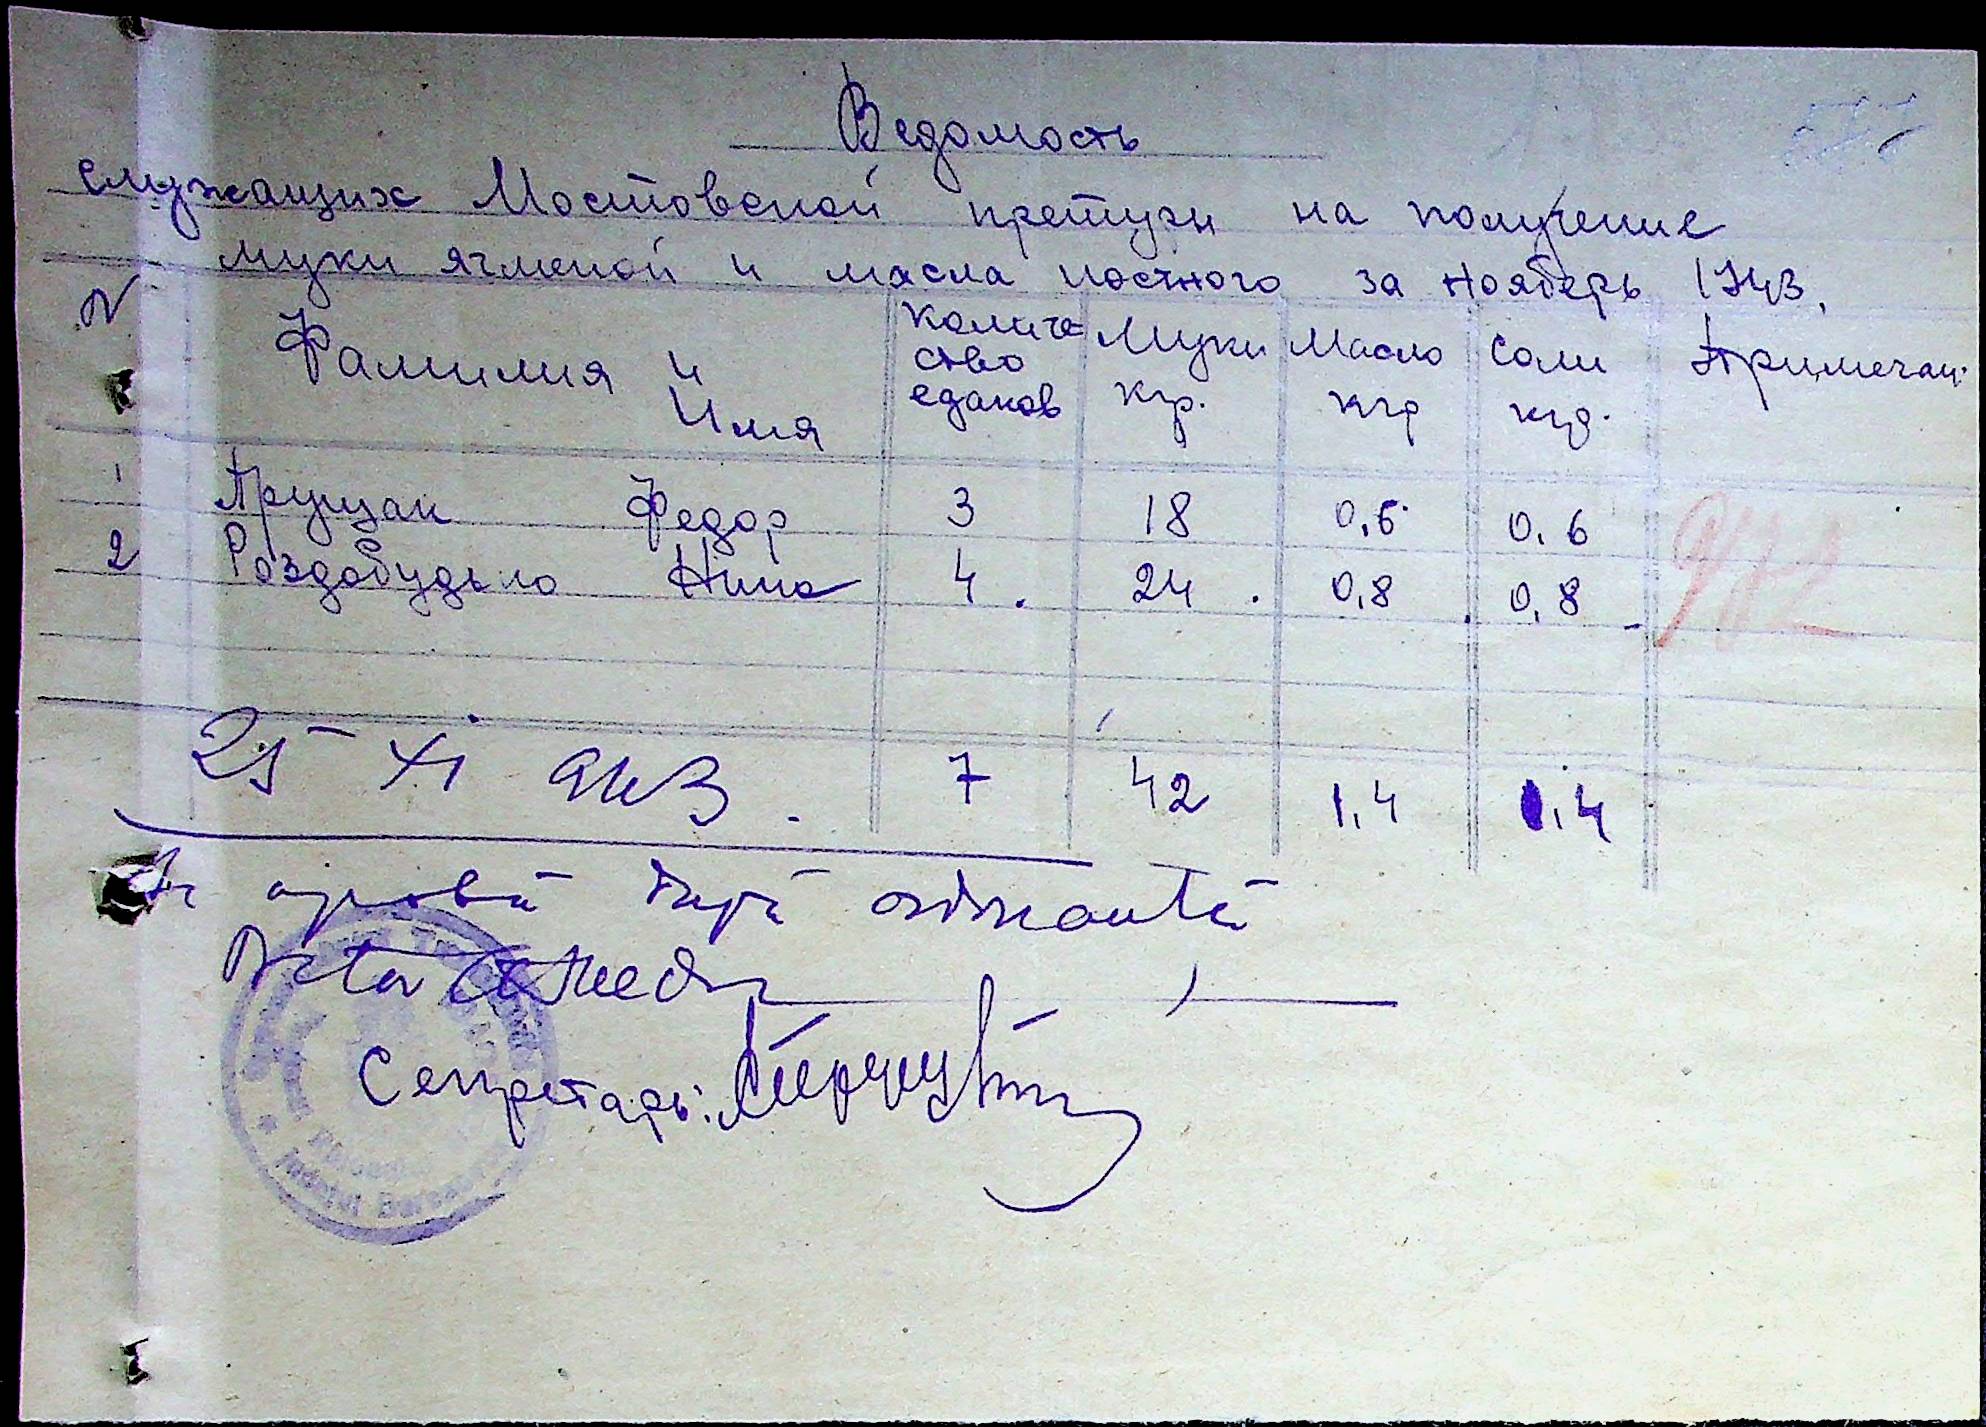 Ведомость
служащих Мостовской претуры на получение
муки ячменой и масла постного за ноябрь 1943.
N Фамилия и Имя Количество едаков Муки кгр. Масло кгр Соли кгр. Примечан.
1 Прущак Федор 3 18 0,6 0,6
2 Роздобудько Нина 4. 24. 0,8. 0,8
25 XI 943. 7 42 1,4 1,4
după ordonanță
Секретарь:
Județul